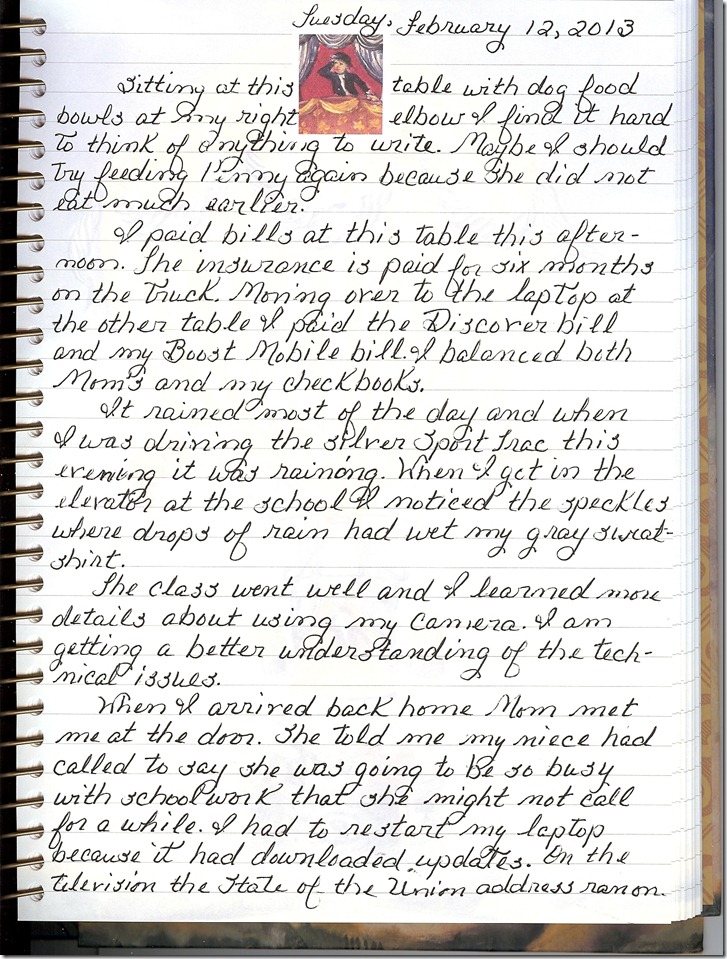 Tuesday, February 12, 2013
Sitting at this table with dog food
bowls at my right elbow I find it hard
to think of anything to write. Maybe I should
try feeding Pinny again because she did not
eat much earlier.
I paid bills at this table this after-
noon. The insurance is paid for six months
on the truck. Moving over to the laptop at
the other table I paid the Discover bill
and my Boost Mobile bill. I balanced both
Mom's and my checkbooks.
It rained most of the day and when
I was driving the silver Sport Trac this
evening it was raining. When I got in the
elevator at the school I noticed the speckles
where drops of rain had wet my gray sweat-
shirt.
The class went well and I learned more
details about using my camera. I am
getting a better understanding of the tech-
nical issues.
When I arrived back home Mom met
me at the door. She told me my niece had
called to say she was going to be so busy
with schoolwork that she might not call
for a while. I had to restart my laptop
because it had downloaded updates. On the
television the State of the Union address ran on.